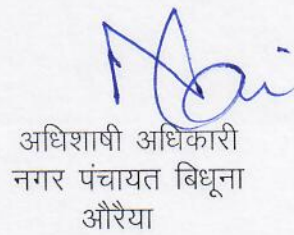 अधिशाषी अधिकारी
नगर पंचायत बिधूना
औरैया